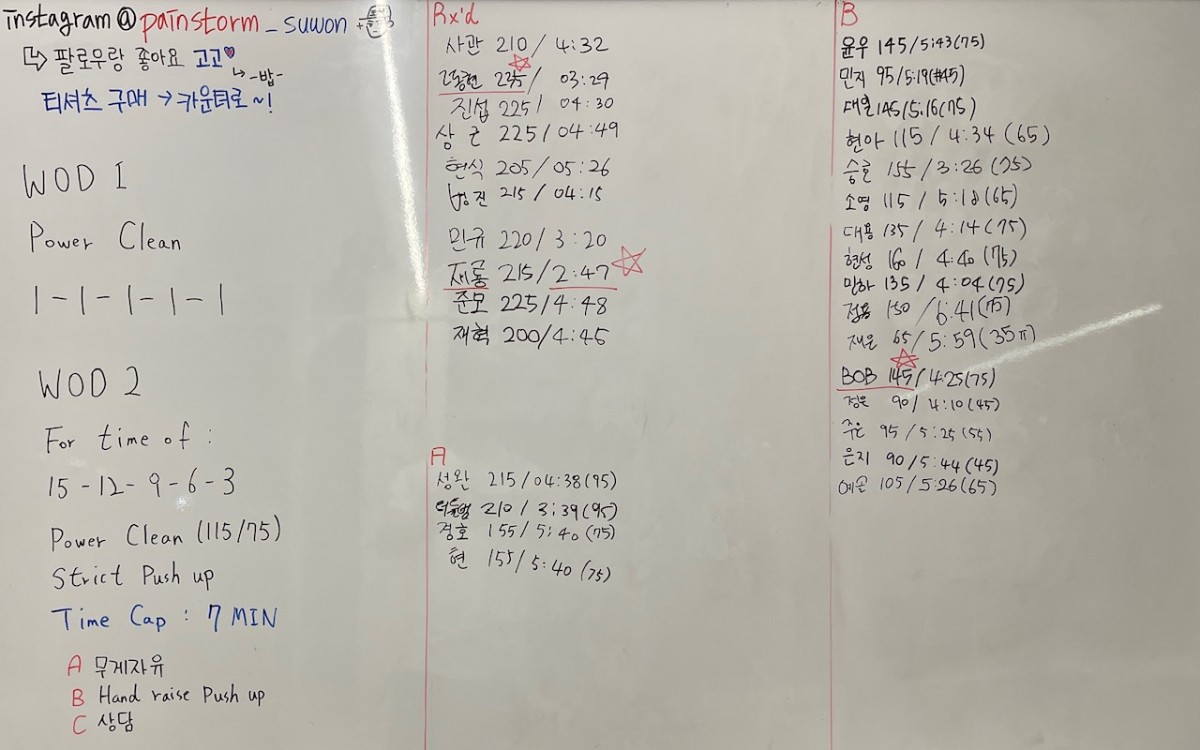 instagram@painstorm_suwon
팔로우랑 좋아요 고고♥
-밥-
티셔츠 구매 → 카운터로~!
WOD 1
Power Clean
1-1-1-1-1
WOD 2
For time of :
15-12-9-6-3
Power Clean (115/75)
Strict Push up
Time Cap : 7 MIN
A 무게자유
B Hand raise Push up
C 상담
Rx'd
사관 210 / 4:32
235/ 03:29
진섭 225/ 04:30
상근 225/04:49
현식 205/05:26
범진 215/04:15
민규 220/3:20
재룡 215/2:47
준모 225/4:48
재혁 200/4:45
A
성완 215/04:38(95)
210 / 3:39(95)
경호 155/5:40(75)
현 155/5:40(75)
B
윤우 145/5:43(75)
민지 95/5:19(#45)
대일 145/5:16(75)
현아 115 / 4:34 (65)
승호 155/3:26(75)
소영 115 / 5:18(65)
대용 135/ 4:14(75)
현성 160/ 4:40(75)
민하 135/ 4:04(75)
정용 150/6:41(75)
재은 65/5:59(35π)
BOB 145/4:25(75)
정은 90/4:10(45)
주은 95/5:25(55)
은지 90/5:44(45)
예슬 105/5:26(65)